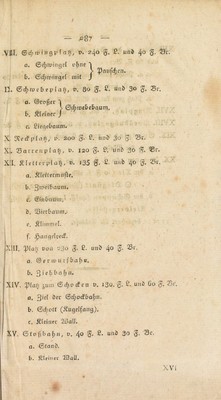 — 287 —
VIII. Schwingplatz, v. 240 F. L. und 40 F. Br.
a. Schwingel ohne
b. Schwingel mit } Pauschen.
IX. Schwebeplatz, v. 80 F. L. und 30 F. Br.
a. Großer
b. Kleiner } Schwebebaum.
c. Liegebaum.
X. Reckplatz, v. 200 F. L. und 30 F. Br.
XI. Barrenplatz, v. 120 F. L. und 36 F. Br.
XII. Kletterplatz, v. 135 F. L. und 40 F. Br.
a. Klettermaste.
b. Zweibaum.
c. Einbaum.
d. Vierbaum.
e. Klimmel.
f. Hangelreck.
XIII. Platz von 230 F. L. und 40 F. Br.
a. Gerwurfbahn.
b. Ziehbahn.
XIV. Platz zum Schocken v. 130. F. L. und 60 F. Br.
a. Ziel der Schockbahn.
b. Schott (Kugelfang).
c. Kleiner Wall.
XV. Stoßbahn, v. 40 F. L. und 30 F. Br.
a. Stand.
b. Kleiner Wall.
XVI